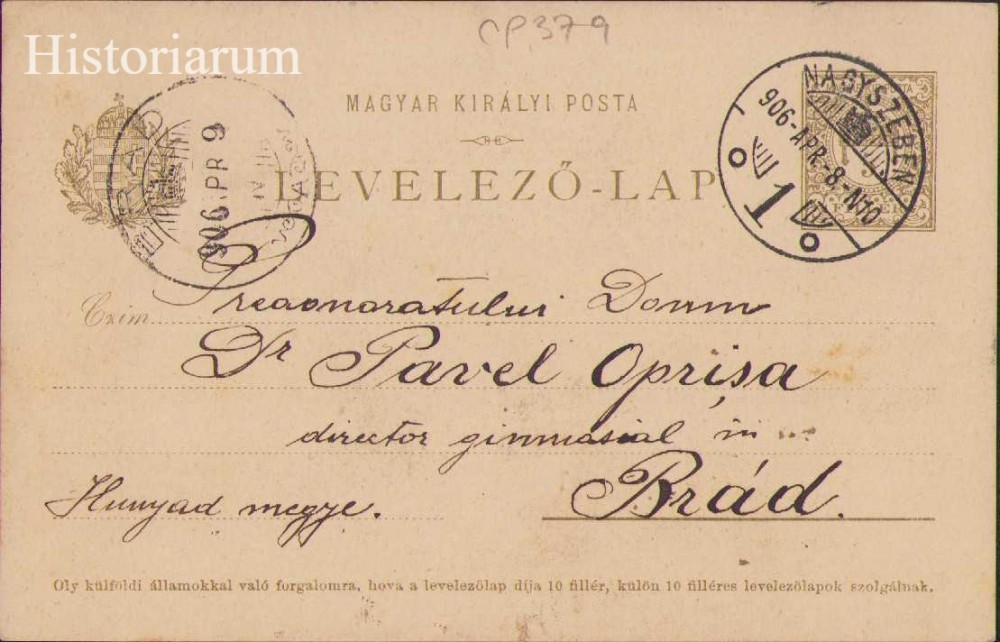 CP.379
Historiarum
MAGYAR KIRÁLYI POSTA
NAGYSZEBEN
906-APR.-8-N10
1
BRÁD
906 APR 9
LEVELEZŐ-LAP
Czim
Preaonoratului Domn
Dr Pavel Oprişa
director gimnasial in
Hunyad megye.
Brád.
Oly külföldi államokkal való forgalomra, hova a levelezőlap dija 10 fillér, külön 10 filléres levelezőlapok szolgálnak.